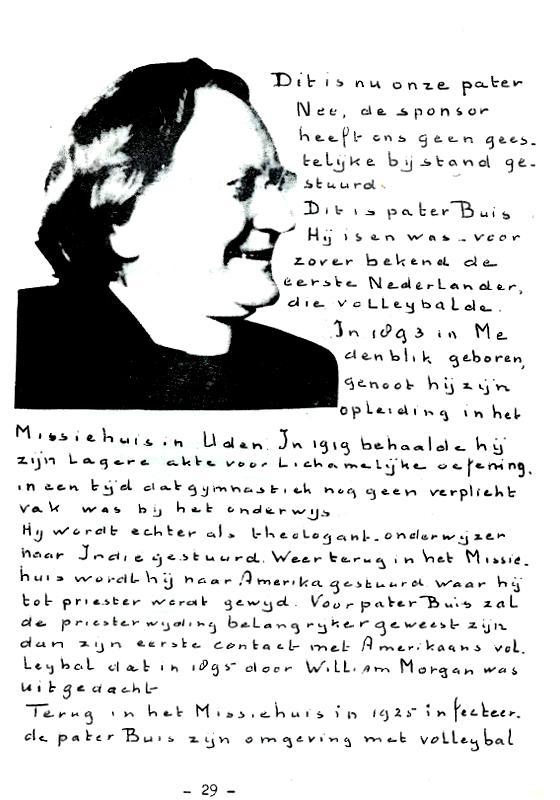 Dit is nu onze pater
Nee, de sponsor
heeft ons geen gees-
telijke bijstand ge-
stuurd.
Dit is pater Buis
Hij is en was - voor
zover bekend de
eerste Nederlander,
die volleybalde.
In 1893 in Me
denblik geboren,
genoot hij zijn
opleiding in het
Missiehuis in Uden. In 1919 behaalde hij
zijn Lagere akte voor Lichamelijke oefening.
in een tijd dat gymnastiek nog geen verplicht
vak was bij het onderwijs
Hij wordt echter als theologant-onderwijzer
naar Indie gestuurd. Weer terug in het Missie-
huis wordt hij naar Amerika gestuurd waar hij
tot priester wordt gewijd. Voor pater Buis zal
de priesterwijding belangrijker geweest zijn
dan zijn eerste contact met Amerikaans vol.
Leybal dat in 1895 door William Morgan was
uitgedacht
Terug in het Missiehuis in 1925 infecteer.
de pater Buis zijn omgeving met volleybal
- 29 -